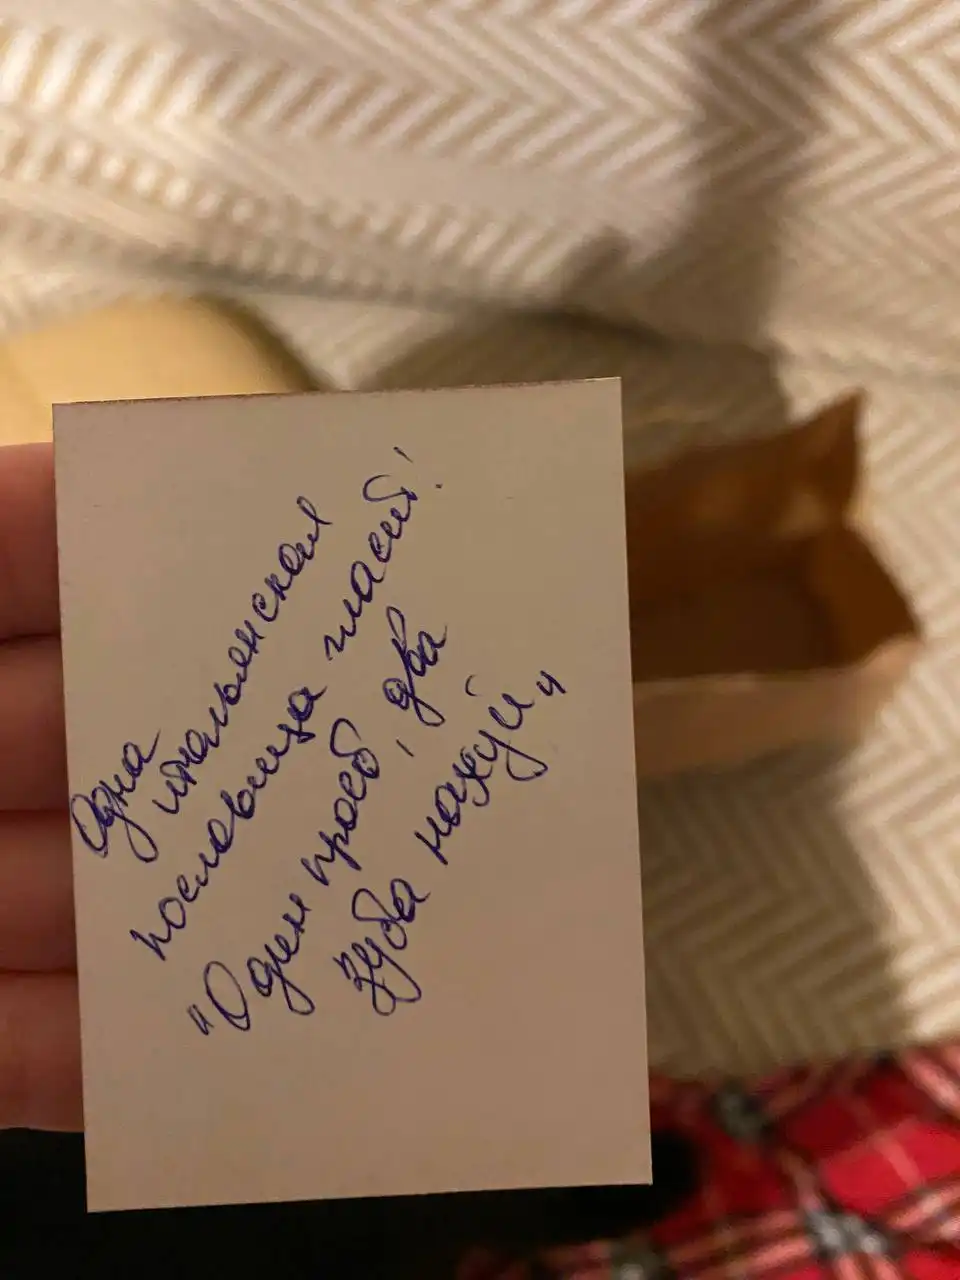 Одна
итальянская
пословица гласит:
"Один проёб, два
зуба нахуй"